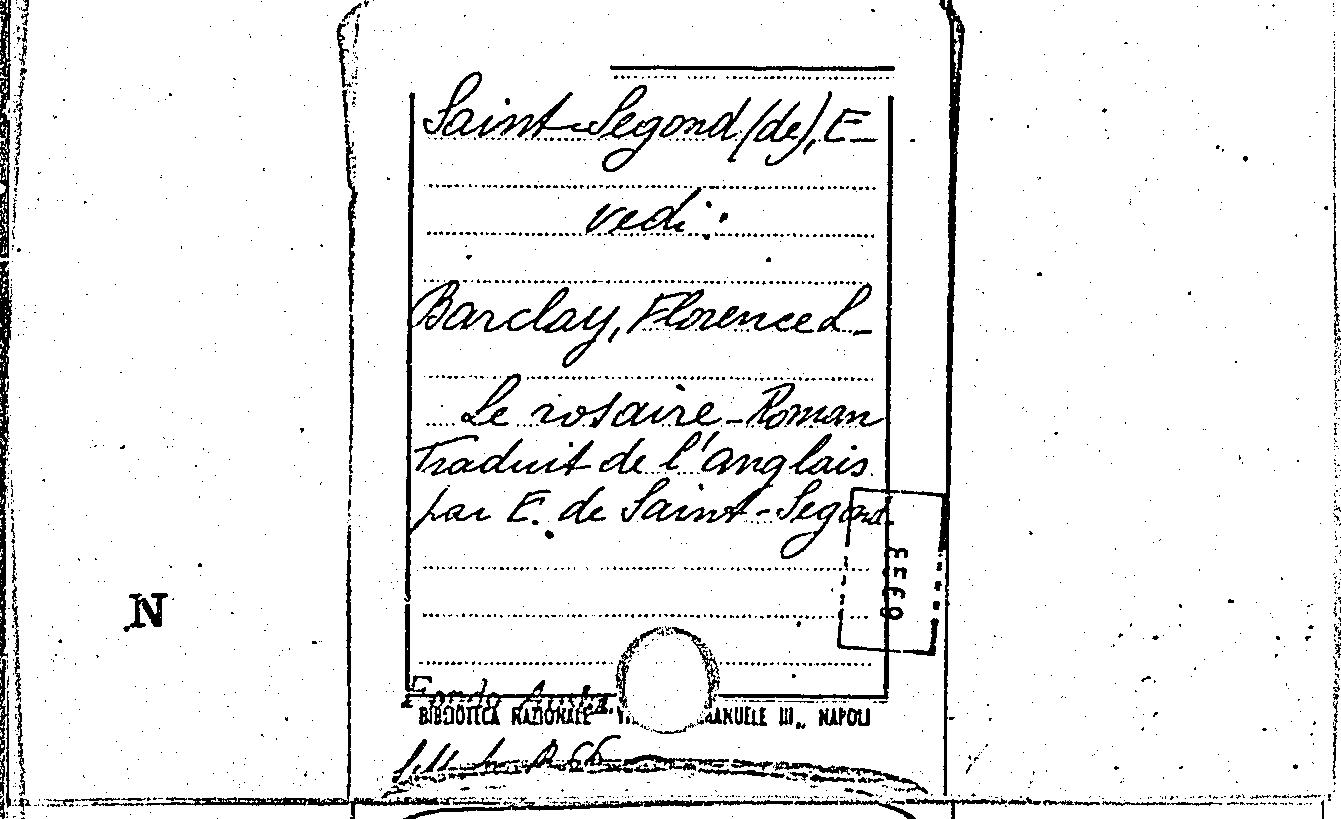 Saint-Segond (de), E-
vedi:
Barclay, Florence L-
Le rosaire - Roman
Traduit de l'anglais
par E. de Saint-Segond.
0933
N
Fondo
BIBLIOTECA NAZIONALE MANUELE III., NAPOLI